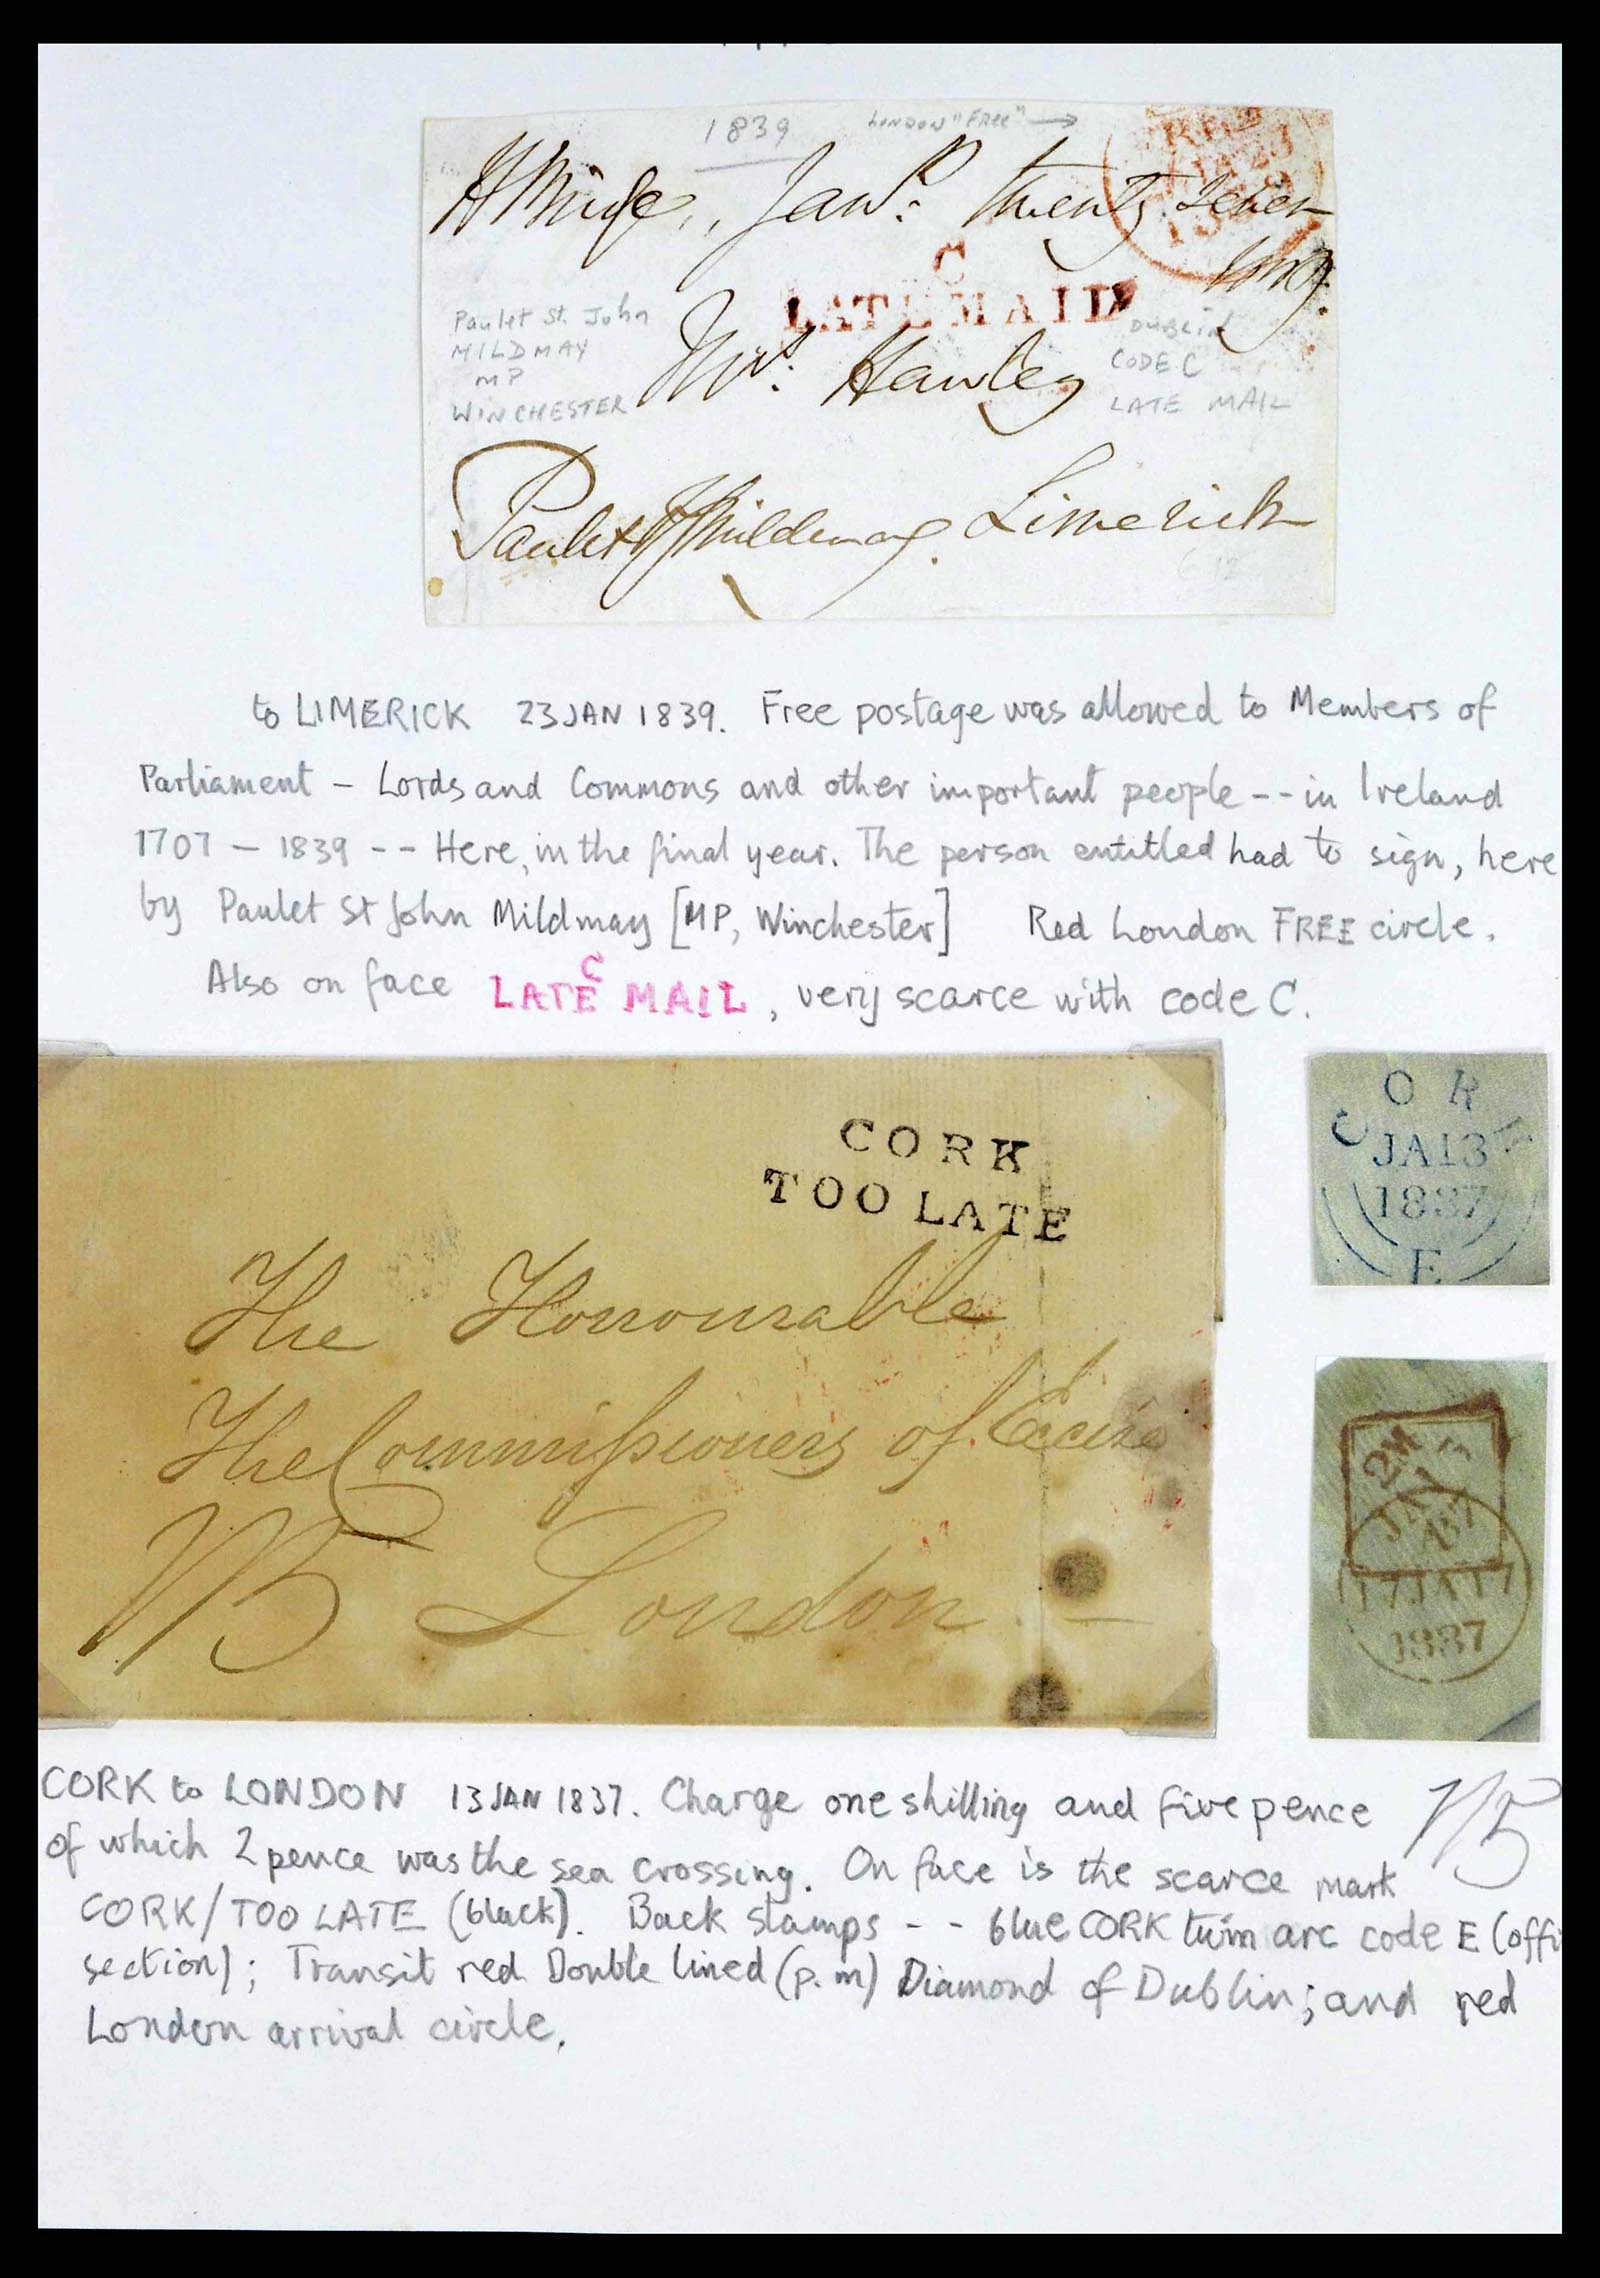 1839 LONDON "FREE" →
Janr. twenty seven
C
LATE MAIL
Paulet St. John
MILDMAY
MP
WINCHESTER
DUBLIN
CODE C
LATE MAIL
Mrs. Hawley
Paulet St J Mildmay. Limerick
to LIMERICK 23 JAN 1839. Free postage was allowed to Members of
Parliament – Lords and Commons and other important people -- in Ireland
1707 – 1839 -- Here, in the final year. The person entitled had to sign, here
by Paulet St John Mildmay [MP, Winchester] Red London FREE circle.
Also on face LATE C MAIL, very scarce with code C.
CORK
TOO LATE
The Honourable
The Commissioners of Excise
1/5 London
CORK
JA 13
1837
E
JA
17 JA 17
1837
CORK to LONDON 13 JAN 1837. Charge one shilling and five pence 1/5
of which 2 pence was the sea crossing. On face is the scarce mark
CORK/TOO LATE (black). Back stamps -- blue CORK twin arc code E (offi
section); Transit red Double lined (p.m) Diamond of Dublin; and red
London arrival circle.